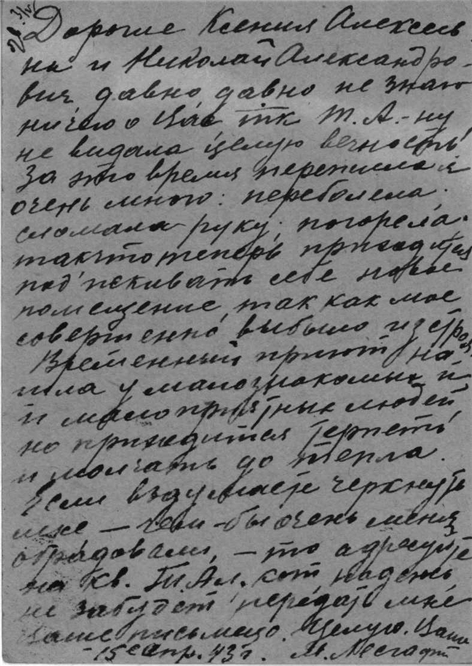 Дорогие Ксения Алексеев
на и Николай Александро-
вич давно давно не знаю
ничего о Вас тк Т.А.-ну
не видала целую вечность
За это время пережила я
очень много: переболела,
сломала руку, погорела
так что теперь приходится
под'искивать себе новое
помещение, так как мое
совершенно выбыло из строя
Временный приют на-
шла у малознакомых и
и малоприятных людей
но приходится терпеть
и молчать до тепла.
Если вздумаете черкнуть
мне — чем-бы очень меня
обрадовали, — то адресуйте
на кв. Т.Ал. кот надеюсь
не забудет передать мне
Ваше письмецо. Целую. Ваша
15 апр. 43 г. М.